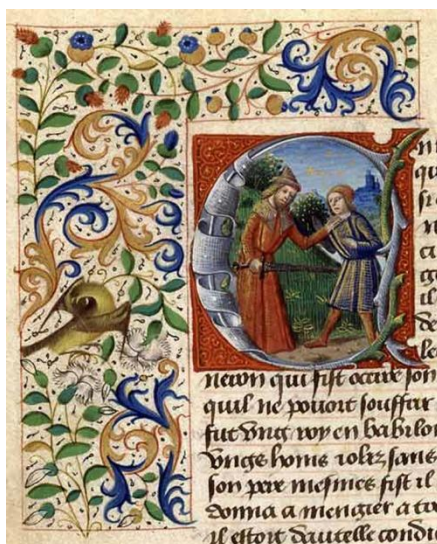 qu
il
de
le
neron qui fist occire son
quil ne pouoit souffrir
fut vng roy en babilon
home sans
son pere mesmes fist il
donna a mengier a
il estoit dautelle condi